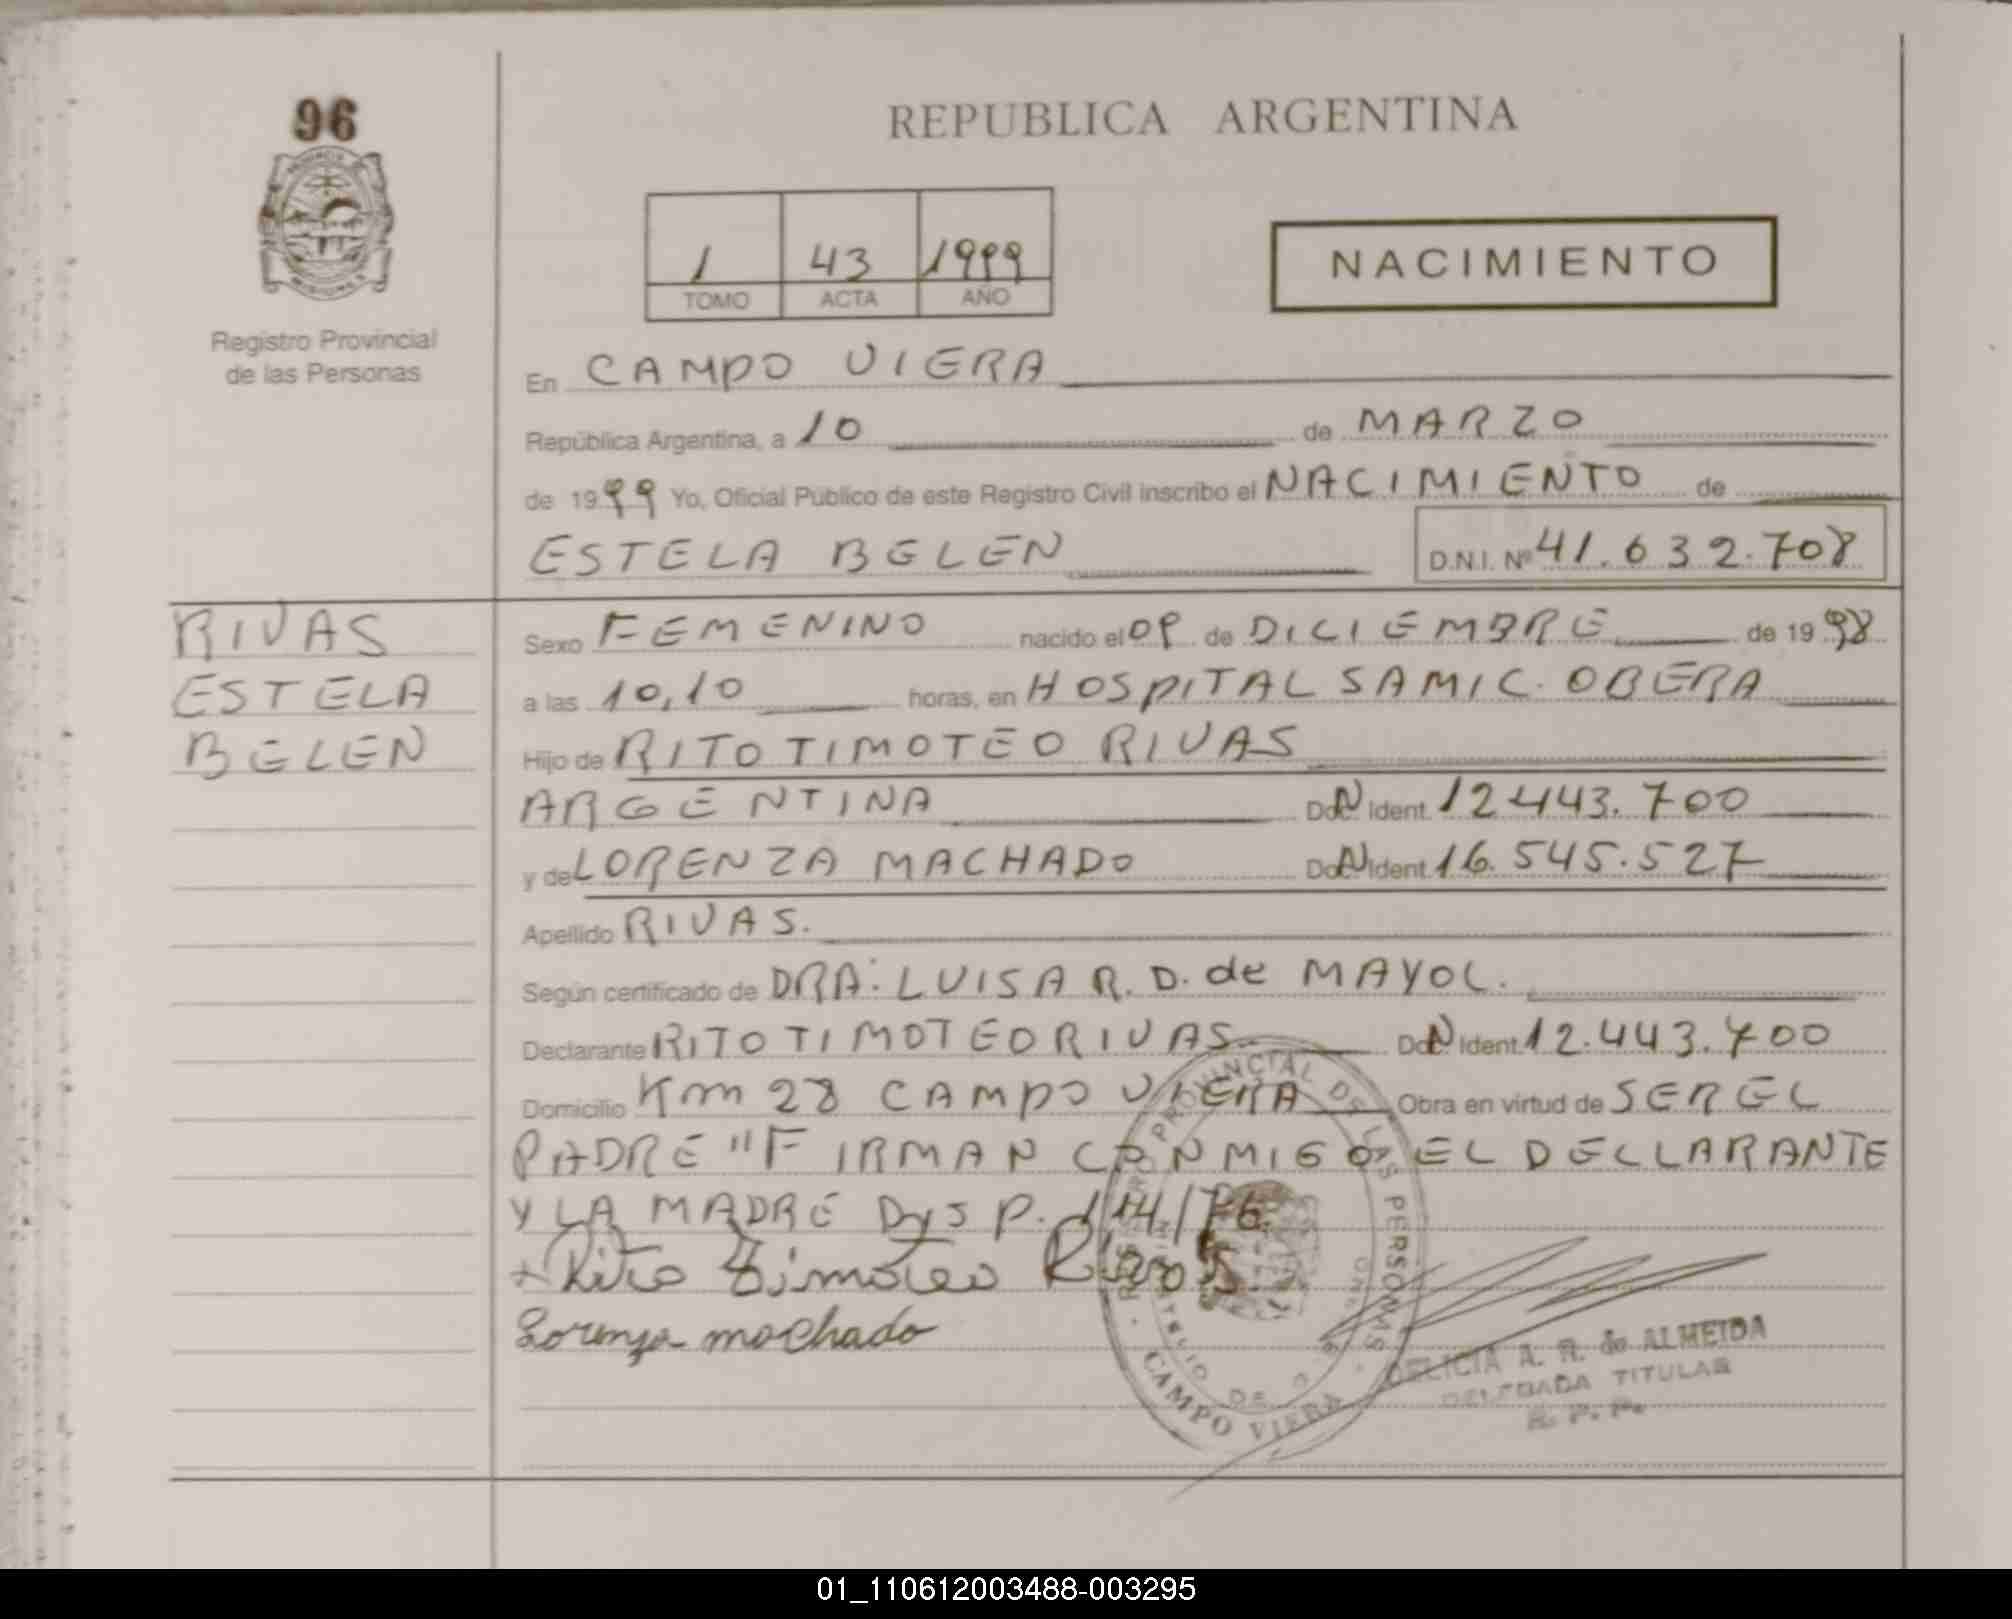 96
REPUBLICA ARGENTINA
1 43 1999
TOMO ACTA AÑO
NACIMIENTO
Registro Provincial
de las Personas
En CAMPO VIERA
República Argentina, a 10 de MARZO
de 1999 Yo, Oficial Público de este Registro Civil inscribo el NACIMIENTO de
ESTELA BELEN D.N.I. Nº 41.632.708
RIVAS
ESTELA
BELEN
Sexo FEMENINO nacido el 09 de DICIEMBRE de 1998
a las 10,10 horas, en HOSPITAL SAMIC. OBERA
Hijo de RITO TIMOTEO RIVAS
ARGENTINA Doc. Ident. 12.443.700
y de LORENZA MACHADO Doc. Ident. 16.545.527
Apellido RIVAS.
Según certificado de DRA: LUISA R. D. de MAYOL.
Declarante RITO TIMOTEO RIVAS Doc. Ident. 12.443.700
Domicilio Km 28 CAMPO VIERA Obra en virtud de SER EL
PADRE "FIRMAN CONMIGO EL DECLARANTE
Y LA MADRE DySP. 114/76.
Rito Timoteo Rivas
Lorenza machado
REGISTRO PROVINCIAL DE LAS PERSONAS
CAMPO VIERA
DELICIA A. R. de ALMEIDA
DELEGADA TITULAR
R. P. P.
01_110612003488-003295